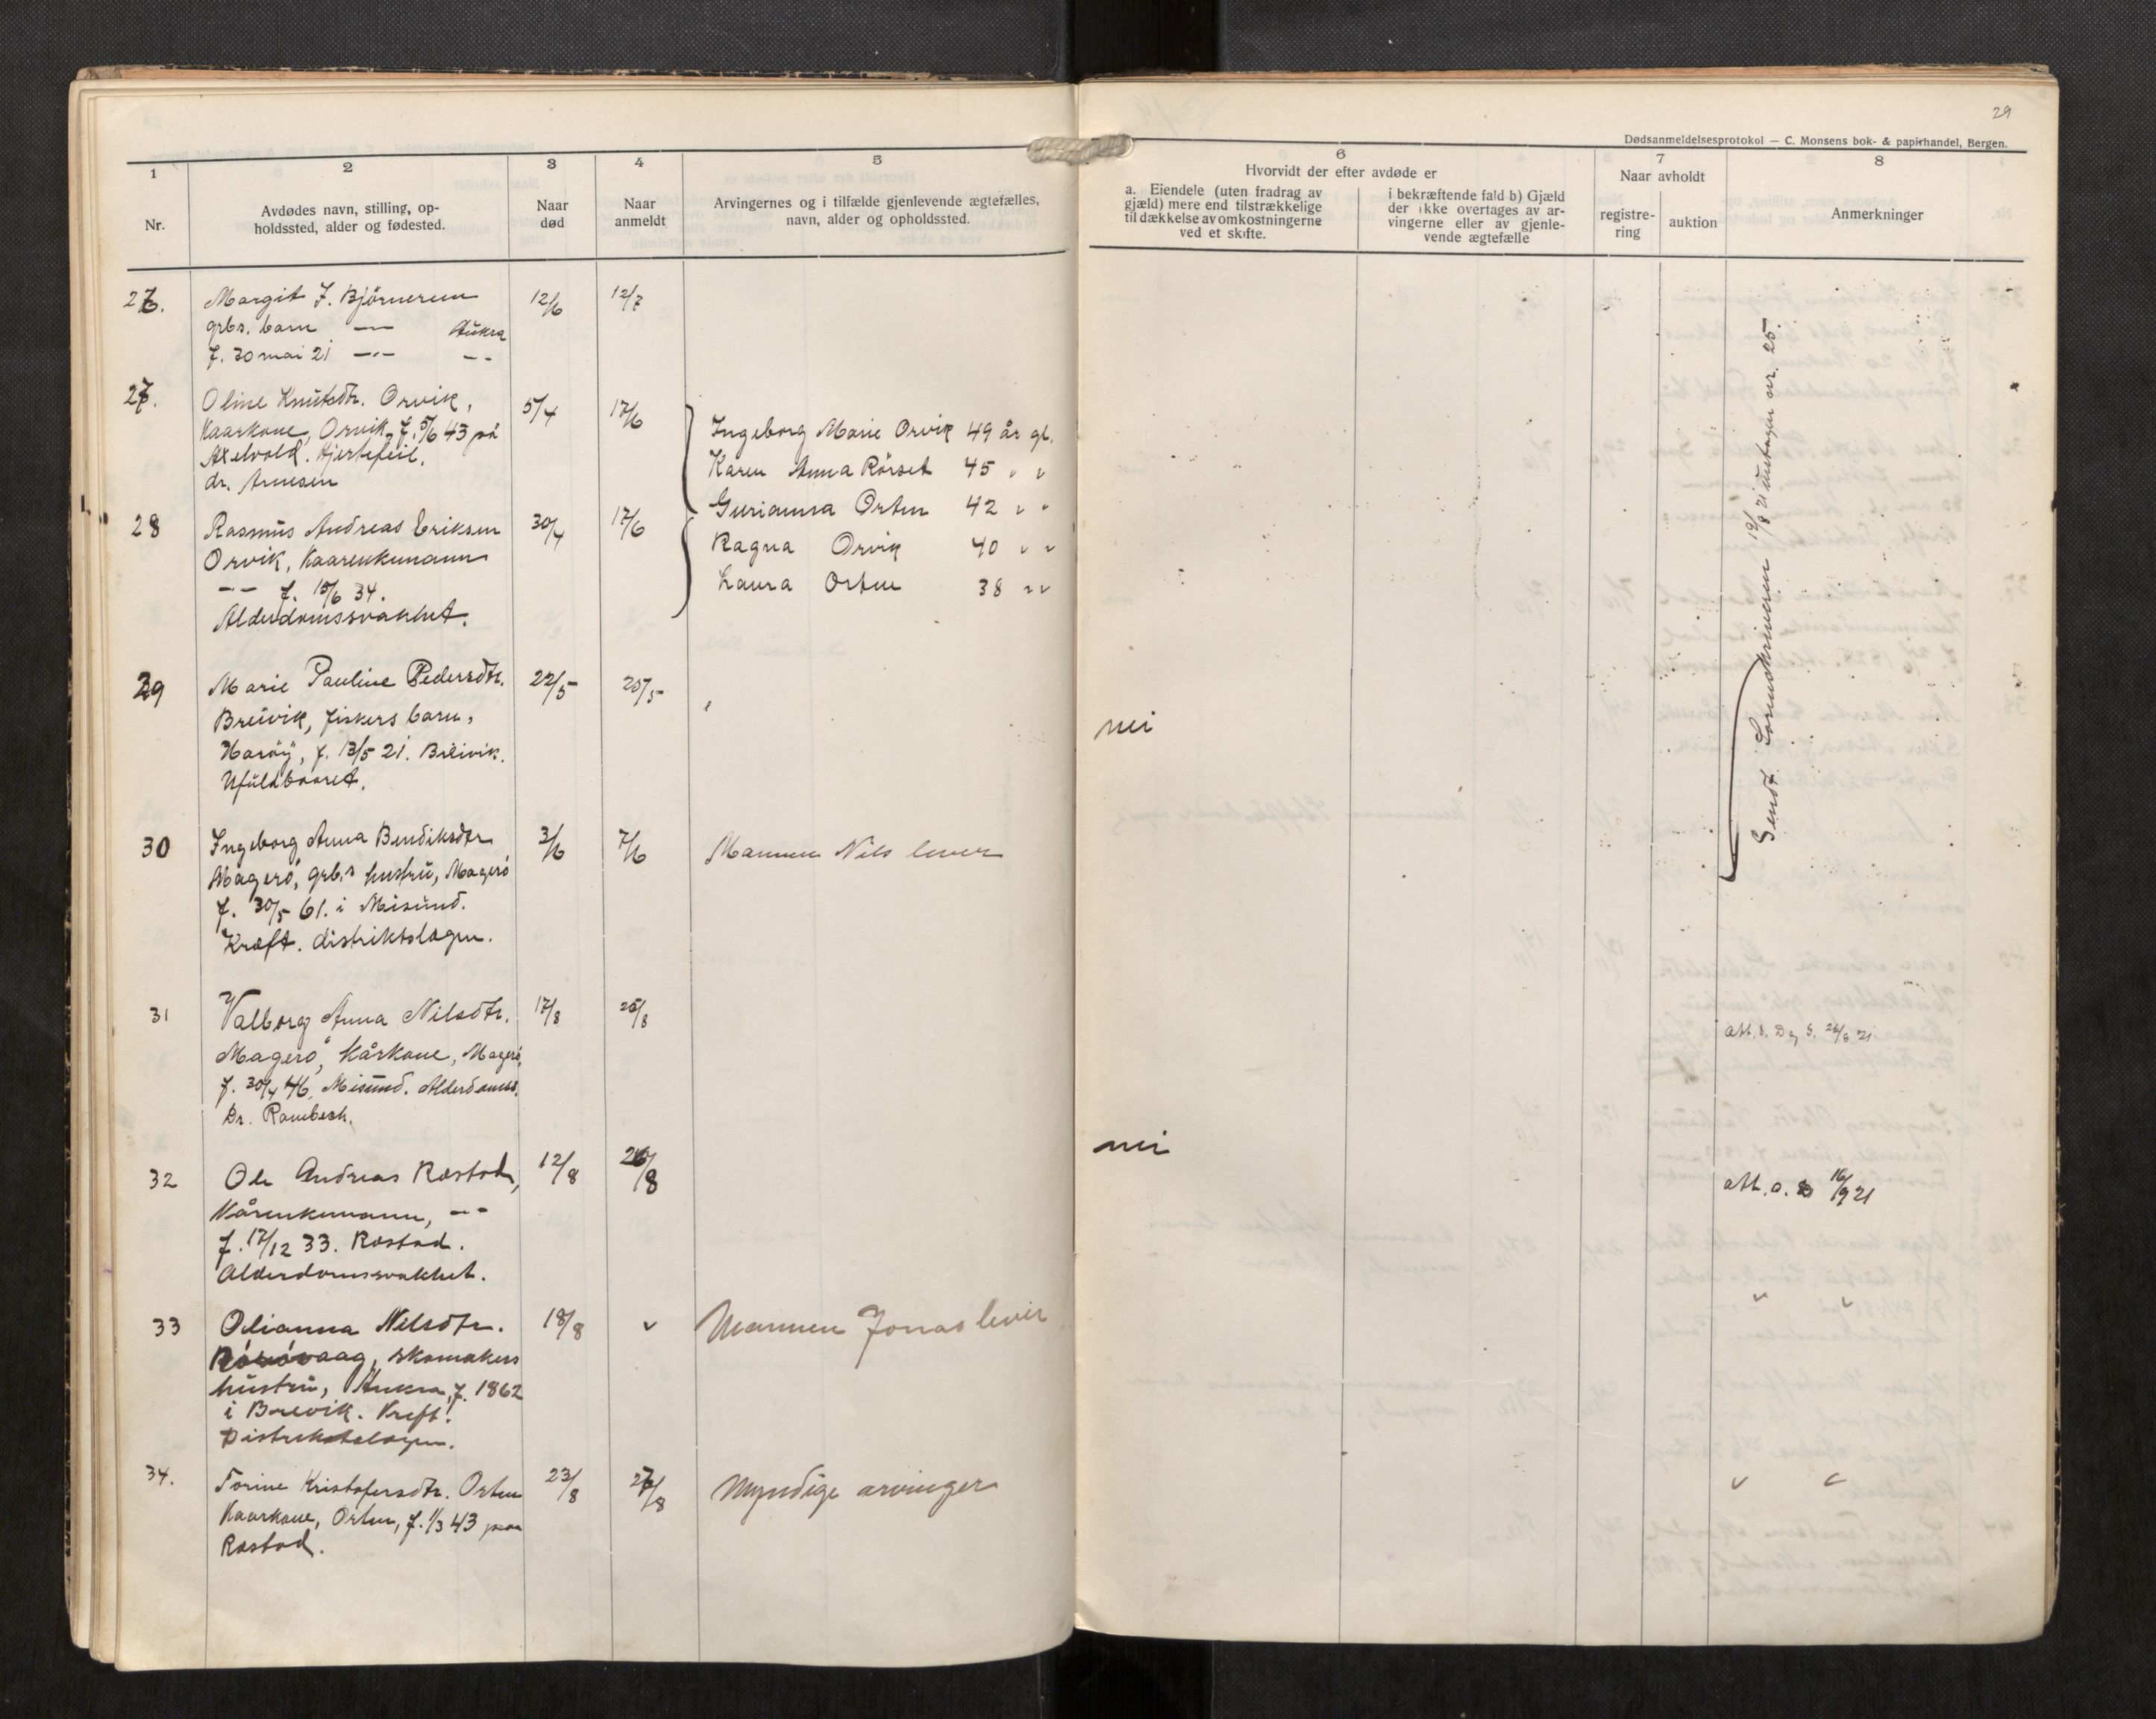 29
Dødsanmeldelsesprotokol — C. Monsens bok- & papirhandel, Bergen.
1
Nr.
2
Avdødes navn, stilling, op-
holdssted, alder og fødested.
3
Naar
død
4
Naar
anmeldt
5
Arvingernes og i tilfælde gjenlevende ægtefælles,
navn, alder og opholdssted.
6
Hvorvidt der efter avdøde er
a. Eiendele (uten fradrag av
gjæld) mere end tilstrækkelige
til dækkelse av omkostningerne
ved et skifte.
i bekræftende fald b) Gjæld
der ikke overtages av ar-
vingerne eller av gjenle-
vende ægtefælle
7
Naar avholdt
registre-
ring
auktion
8
Anmerkninger
26. Margit J. Bjørnerem 12/6 12/7
grbr. barn —"— Aukra
f. 30 mai 21 —"— —"—
27. Oline Knutsdtr. Orvik, 5/4 17/6
Kaarkone, Orvik, f. 5/6 43 på
Axelvold. Hjertefeil.
dr. Arnesen
Ingeborg Marie Orvik 49 år gl.
Karen Anna Rörset 45 " "
Gurianna Orten 42 " "
Ragna Orvik 40 " "
Laura Orten 38 " "
28 Rasmus Andreas Eriksen 30/4 17/6
Orvik, Kaarenkemann
—"— f. 15/6 34.
Alderdomssvakhet.
29 Marie Pauline Pedersdtr. 22/5 25/5 nei
Breivik, fiskers barn,
Haröy, f. 13/5 21. Breivik.
Ufuldbaaret.
30 Ingeborg Anna Bendiksdtr 3/6 7/6 Mannen Nils lever
Magerö, grb.s hustru, Magerö
f. 30/5 61. i Misund.
Kræft. distriktslægen.
Sendt Sorenskriveren 19/8 21 undtagen nr. 25.
31 Valborg Anna Nilsdtr. 17/8 25/8
Magerö, kårkone, Magerö,
f. 30/4 46, Misund. Alderdomss.
Dr. Rambech.
att. s. D 26/8 21
32 Ole Andreas Røstad, 12/8 26/8 nei
Kårenkemann, —"—
f. 17/12 33. Røstad.
Alderdomssvakhet.
att. o. 16/9 21
33 Olianna Nilsdtr. 18/8 " Mannen Jonas lever " "
skomakers
hustru, Aukra, f. 1862
i Breivik. Kreft.
Distriktslægen.
34. Torine Kristofersdtr. Orten 23/8 27/8 Myndige arvinger " "
Kaarkone, Orten, f. 1/3 43 paa
Røstad.